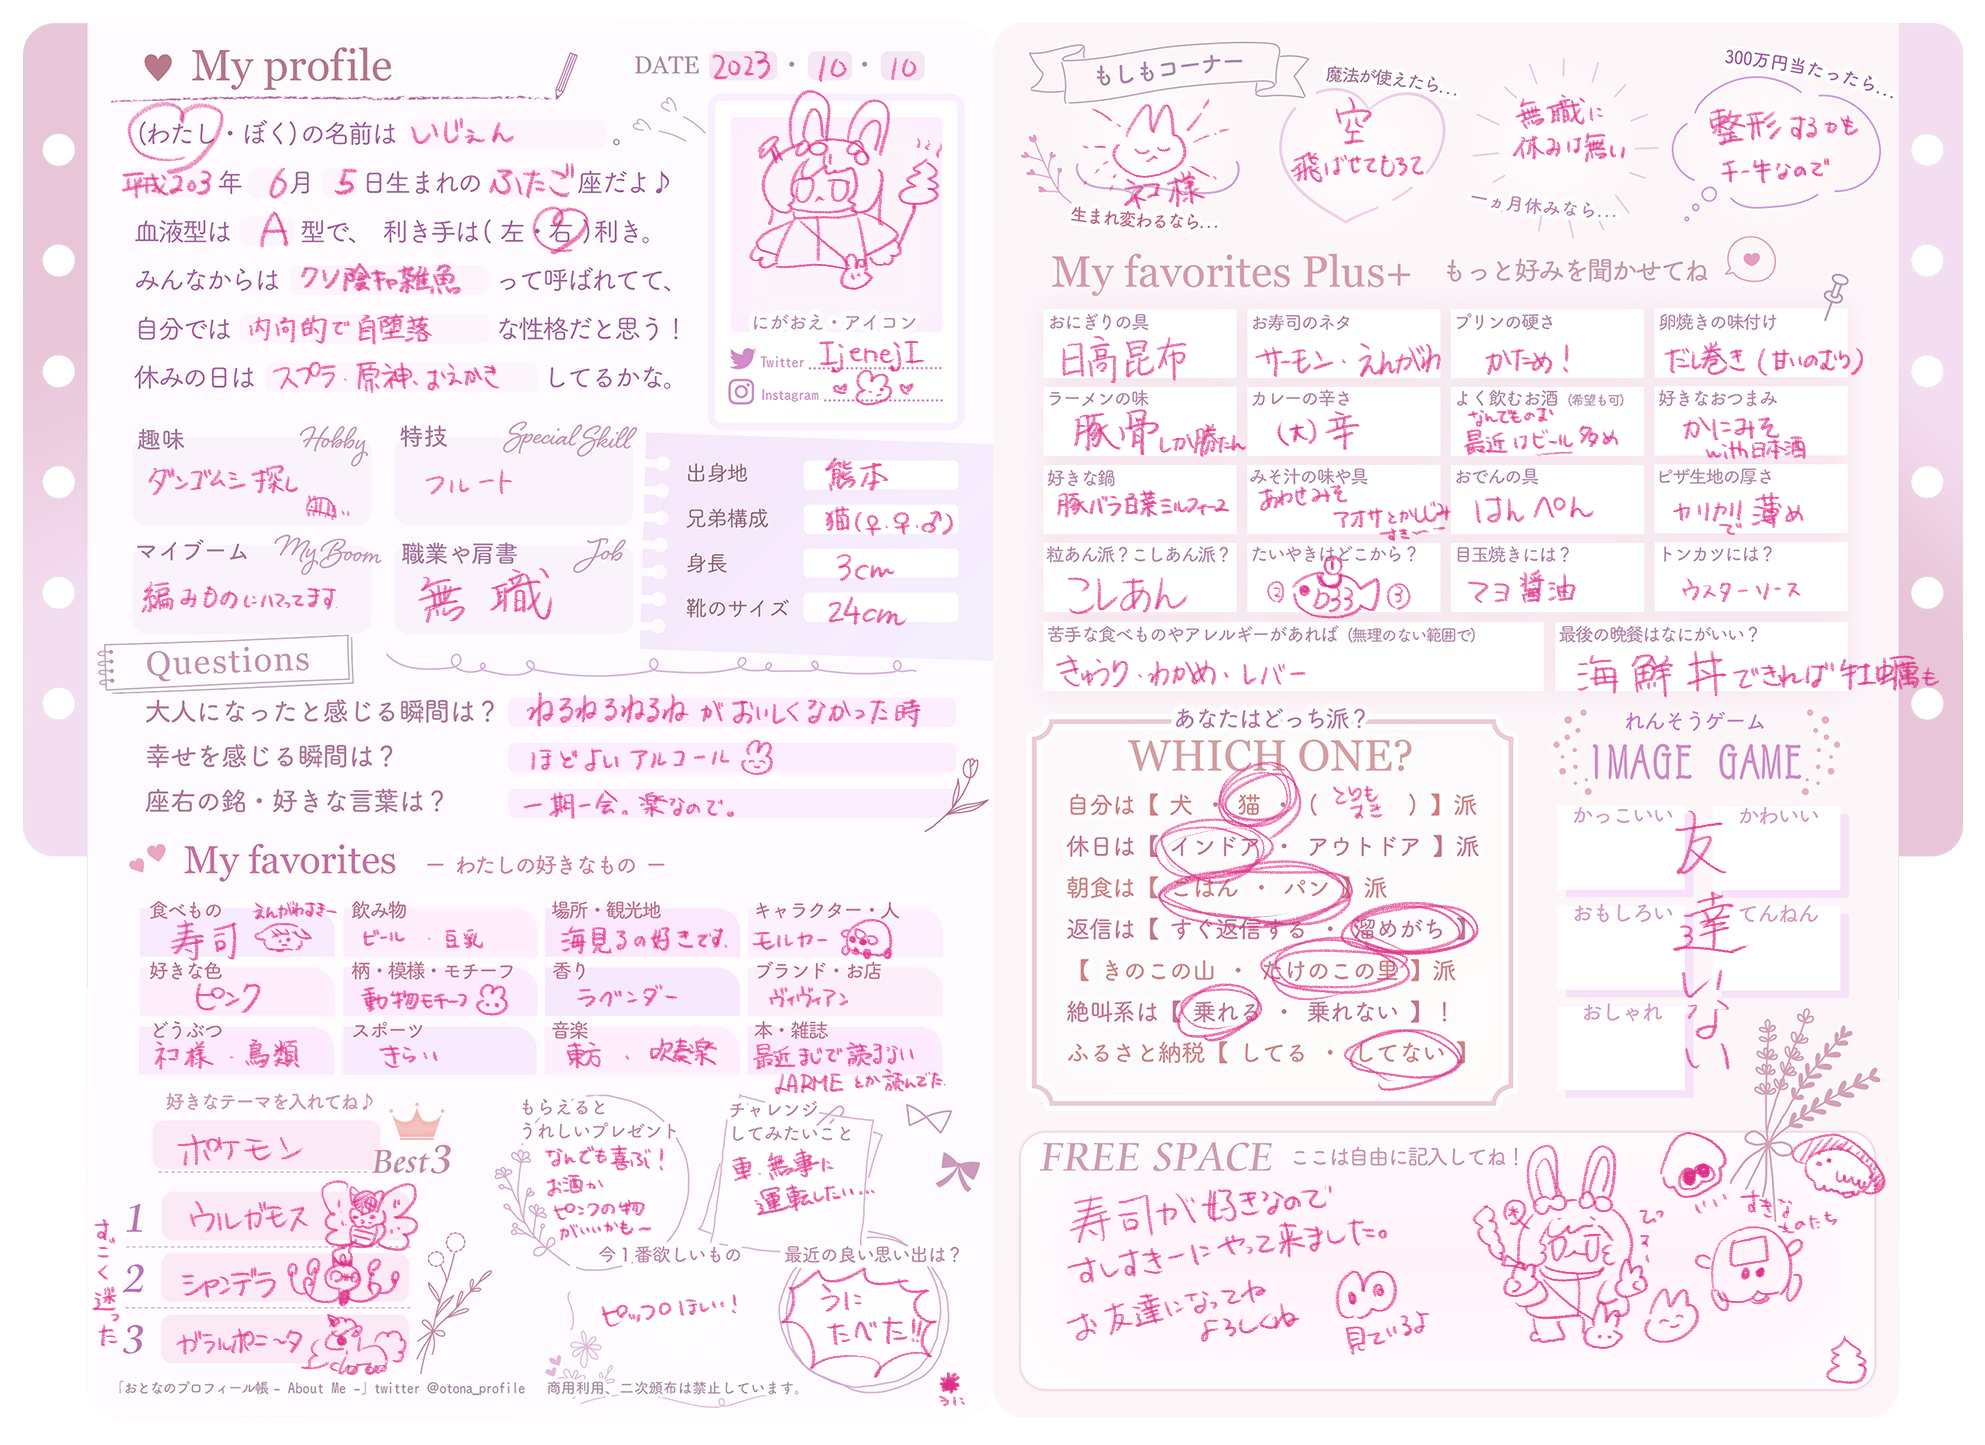 My profile
DATE 2023・10・10
(わたし・ぼく)の名前は いじぇん 。
平成203年 6月 5日生まれの ふたご座だよ♪
血液型は A 型で、 利き手は(左・右)利き。
みんなからは クソ陰キャ雑魚 って呼ばれてて、
自分では 内向的で自堕落 な性格だと思う！
休みの日は スプラ・原神・おえかき してるかな。
にがおえ・アイコン
Twitter IjenejI
Instagram
趣味 Hobby
ダンゴムシ探し
特技 Special Skill
フルート
マイブーム My Boom
編みものにハマってます
職業や肩書 Job
無職
出身地 熊本
兄弟構成 猫(♀・♀・♂)
身長 3cm
靴のサイズ 24cm
Questions
大人になったと感じる瞬間は？ ねるねるねるねがおいしくなかった時
幸せを感じる瞬間は？ ほどよいアルコール
座右の銘・好きな言葉は？ 一期一会。楽なので。
My favorites ー わたしの好きなもの ー
食べもの えんがわすきー
寿司
飲み物
ビール ・豆乳
場所・観光地
海見るの好きです。
キャラクター・人
モルカー
好きな色
ピンク
柄・模様・モチーフ
動物モチーフ
香り
ラベンダー
ブランド・お店
ヴィヴィアン
どうぶつ
ネコ様・鳥類
スポーツ
きらい
音楽
東方 、 吹奏楽
本・雑誌
最近まじで読まない
LARMEとか読んでた
好きなテーマを入れてね♪
ポケモン
Best3
すごく迷った
1 ウルガモス
2 シャンデラ
3 ガラルポニータ
もらえると
うれしいプレゼント
なんでも喜ぶ！
お酒か
ピンクの物
がいいかも〜
チャレンジ
してみたいこと
車、無事に
運転したい…
今1番欲しいもの
ピッコロほしい！
最近の良い思い出は？
うに
たべた!!
うに
「おとなのプロフィール帳 - About Me -」twitter @otona_profile 商用利用、二次頒布は禁止しています。
もしもコーナー
ネコ様
生まれ変わるなら...
魔法が使えたら...
空
飛ばせてもろて
無職に
休みは無い
一ヵ月休みなら...
300万円当たったら...
整形するかも
チー牛なので
My favorites Plus+ もっと好みを聞かせてね
おにぎりの具
日高昆布
お寿司のネタ
サーモン・えんがわ
プリンの硬さ
かため！
卵焼きの味付け
だし巻き(甘いのむり)
ラーメンの味
豚骨しか勝たん
カレーの辛さ
(大)辛
よく飲むお酒 (希望も可)
なんでものむ
最近はビール多め
好きなおつまみ
かにみそ
with日本酒
好きな鍋
豚バラ白菜ミルフィーユ
みそ汁の味や具
あわせみそ
アオサとかしじみ
すきー
おでんの具
はんぺん
ピザ生地の厚さ
カリカリで薄め
粒あん派？こしあん派？
こしあん
たいやきはどこから？
① ② ③
目玉焼きには？
マヨ醤油
トンカツには？
ウスターソース
苦手な食べものやアレルギーがあれば (無理のない範囲で)
きゅうり・わかめ・レバー
最後の晩餐はなにがいい？
海鮮丼できれば牡蠣も
あなたはどっち派？
WHICH ONE?
自分は【 犬 ・ 猫 ・ ( とりもすき ) 】派
休日は【 インドア ・ アウトドア 】派
朝食は【 ごはん ・ パン 】派
返信は【 すぐ返信する ・ 溜めがち 】
【 きのこの山 ・ たけのこの里 】派
絶叫系は【 乗れる ・ 乗れない 】！
ふるさと納税【 してる ・ してない 】
れんそうゲーム
IMAGE GAME
かっこいい かわいい
おもしろい てんねん
おしゃれ
友達いない
FREE SPACE ここは自由に記入してね！
寿司が好きなので
すしすきーにやって来ました。
お友達になってね
よろしくね
見ているよ
すきな
ものたち